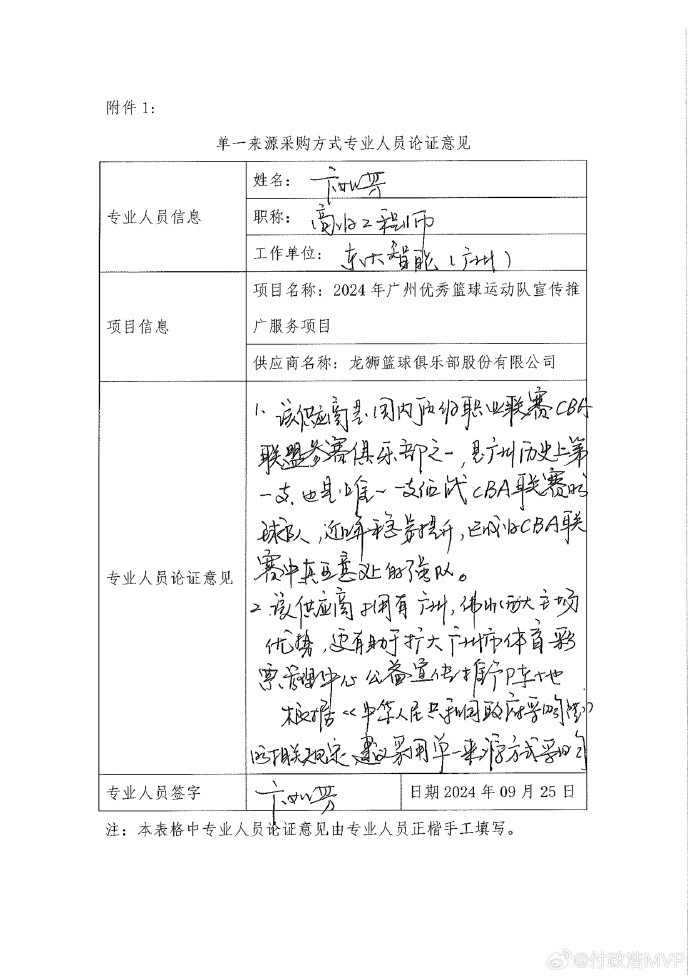 附件 1：
单一来源采购方式专业人员论证意见
专业人员信息
姓名：
职称：高级工程师
工作单位：东大智能（广州）
项目信息
项目名称：2024 年广州优秀篮球运动队宣传推
广服务项目
供应商名称：龙狮篮球俱乐部股份有限公司
专业人员论证意见
1、该供应商是国内顶级职业联赛CBA
联盟参赛俱乐部之一，是广州历史上第
一支也是唯一一支征战CBA联赛的
球队，近年稳步提升，已成为CBA联
赛中真正意义上的强队。
2、该供应商拥有广州，佛山两大主场
优势，更有助于扩大广州市体育彩
票管理中心公益宣传推广阵地
根据《中华人民共和国政府采购法》
的相关规定，建议采用单一来源方式采购
专业人员签字
日期 2024 年 09 月 25 日
注：本表格中专业人员论证意见由专业人员正楷手工填写。
@付政浩MVP